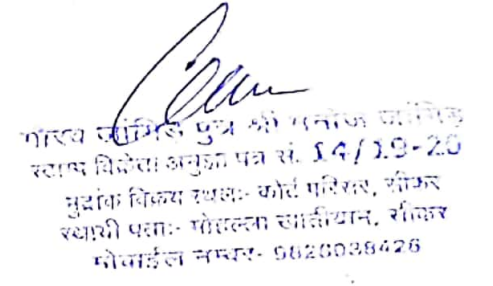 गौरव जांगिड़ पुत्र श्री मनोज जांगिड़
स्टाम्प विक्रेता अनुज्ञा पत्र सं. 14/19-20
मुद्रांक विक्रय स्थलः- कोर्ट परिसर, सीकर
स्थायी पताः- मोहल्ला खातीयान, सीकर
मोबाईल नम्बर- 9826038426